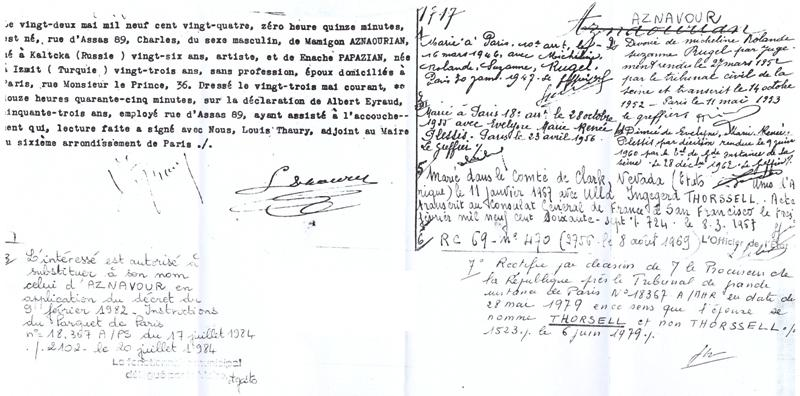 Le vingt-deux mai mil neuf cent vingt-quatre, zéro heure quinze minutes,
est né, rue d'Assas 89, Charles, du sexe masculin, de Mamigon AZNAOURIAN,
né à Kaltcka (Russie) vingt-six ans, artiste, et de Enache PAPAZIAN, née
à Izmit (Turquie) vingt-trois ans, sans profession, époux domiciliés à
Paris, rue Monsieur le Prince, 36. Dressé le vingt-trois mai courant,
douze heures quarante-cinq minutes, sur la déclaration de Albert Eyraud,
cinquante-trois ans, employé rue d'Assas 89, ayant assisté à l'accouche-
ment qui, lecture faite a signé avec Nous, Louis Thaury, adjoint au Maire
du sixième arrondissement de Paris ./.
L'intéressé est autorisé à
substituer à son nom
celui d'AZNAVOUR en
application du décret du
9 février 1982. Instructions
du Parquet de Paris
n° 18.367 A/PS du 17 juillet 1984
./. 2102. le 20 juillet 1984
1717
AZNAVOUR
Aznaourian
Marié à Paris
16 mars 1946, avec Micheline
Rolande, Suzanne, Rugel.
Paris 20 janv. 1947.
Marié à Paris 18e arr. le 28 octobre
1955 avec Evelyne Marie Renée
Plessis. Paris le 23 avril 1956.
le greffier
Divorcé de Micheline Rolande
Suzanne Rugel par juge-
ment rendu le 27 mars 1952
par le tribunal civil de la
Seine et transcrit le 14 octobre
1952 - Paris le 11 mai 1953
le greffier
Divorcé de Evelyne, Marie, Renée
Plessis par décision rendue le 9 juin
1960 par le de Instance de la
Seine. le 28 déc 1962.
5 Marié dans le Comté de Clark, Nevada (Etats Unis d'A
rique) le 11 janvier 1967 avec Ulla Ingegerd THORSSELL. Acte
transcrit au Consulat Général de France à San Francisco le trois
février mil neuf cent soixante-sept ./. 724. le 8.3.1967
6 RC 69 - n° 470 (2756. le 8 août 1969) L'Officier de l'Etat
7° Rectifié par décision de M le Procureur de
la République près le Tribunal de grande
instance de Paris N° 18367 A/MR en date du
28 mai 1979 en ce sens que l'épouse se
nomme THORSELL et non THORSSELL ./.
1523 ./. le 6 juin 1979 ./.